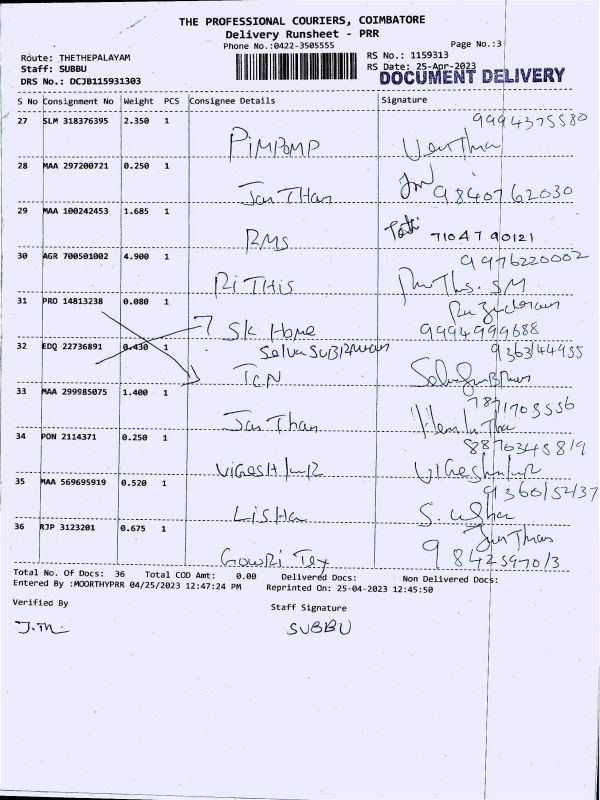 THE PROFESSIONAL COURIERS, COIMBATORE
Delivery Runsheet - PRR
Phone No.:0422-3505555
Page No.:3
Route: THETHEPALAYAM
Staff: SUBBU
DRS No.: DCJB115931303
RS No.: 1159313
RS Date: 25-Apr-2023
DOCUMENT DELIVERY
S No Consignment No Weight PCS Consignee Details Signature
27 SLM 318376395 2.350 1 PIMPOMP 9994375580
28 MAA 297200721 0.250 1 Jan Than 9840762030
29 MAA 100242453 1.685 1 RMS 7104790121
30 AGR 700501002 4.900 1 RiTHis 9976220002
31 PRO 14813238 0.080 1 SK Home 9994999688
32 EDQ 22736891 0.430 1 Selva SUBRMANI 9363144955
TCN
33 MAA 299985075 1.400 1 Jan Than 7871703556
34 PON 2114371 0.250 1 VIGESHWR 8876345819
35 MAA 569695919 0.520 1 LiSHa 9360152137
S. Usha
36 RJP 3123201 0.675 1 Gowri Tex 9842597013
Total No. Of Docs: 36 Total COD Amt: 0.00 Delivered Docs: Non Delivered Docs:
Entered By :MOORTHYPRR 04/25/2023 12:47:24 PM Reprinted On: 25-04-2023 12:45:50
Verified By
Staff Signature
J.M.
SUBBU